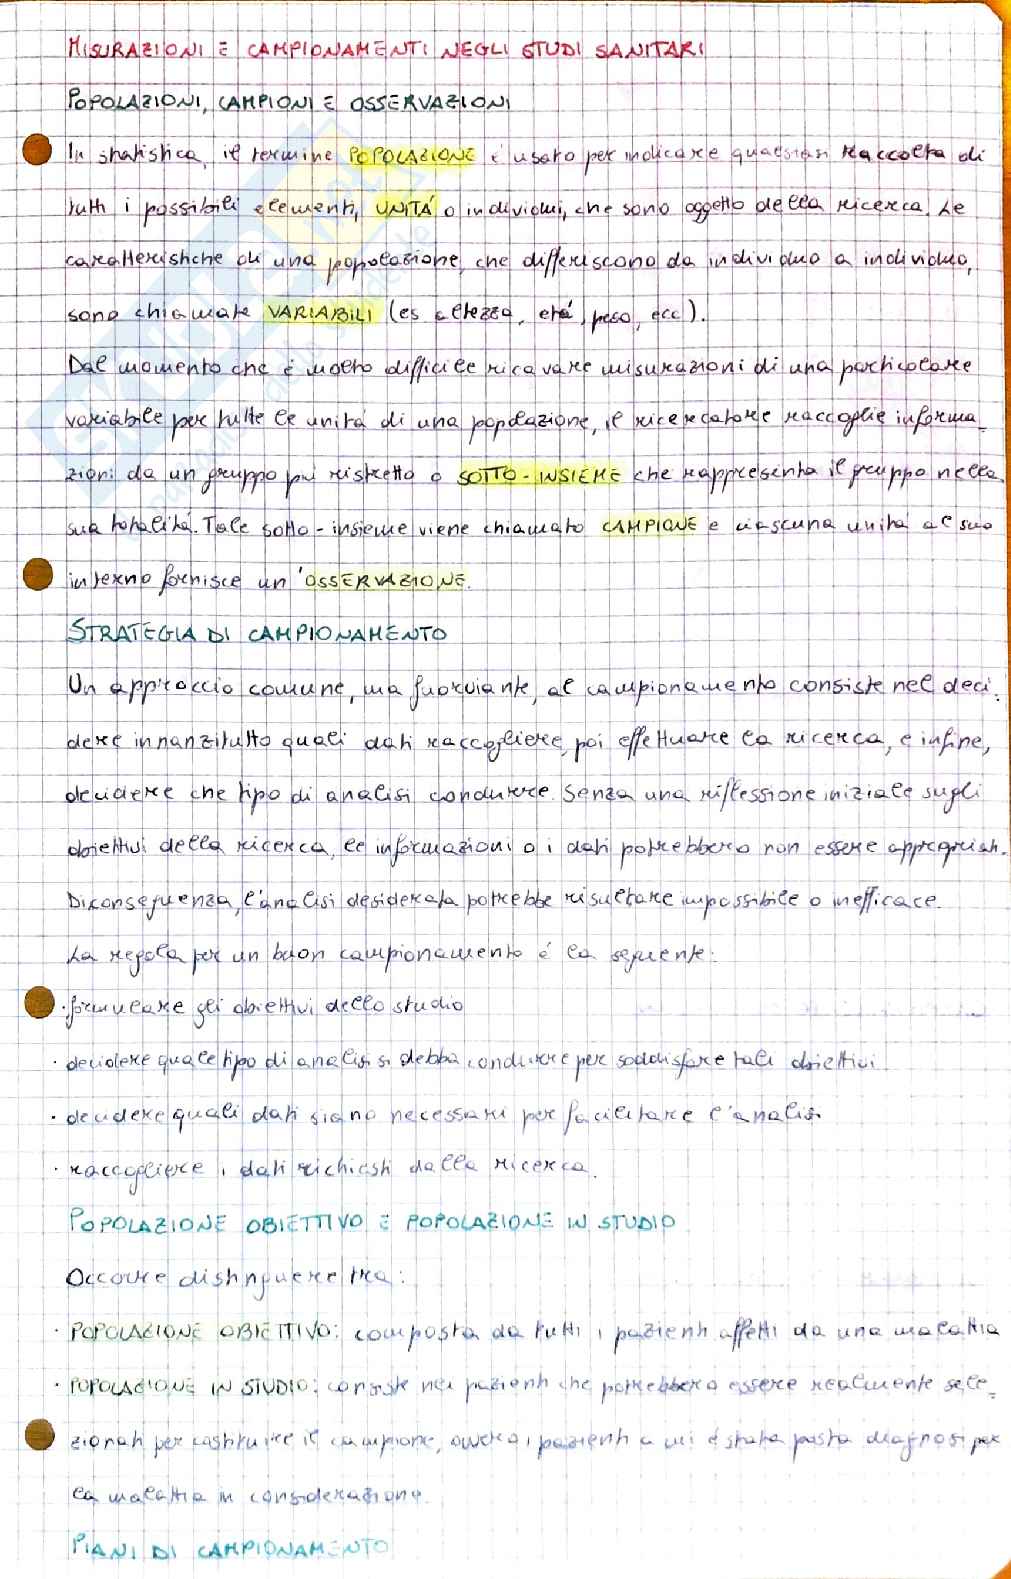 MISURAZIONI E CAMPIONAMENTI NEGLI STUDI SANITARI
POPOLAZIONI, CAMPIONI E OSSERVAZIONI
In statistica, il termine POPOLAZIONE è usato per indicare qualsiasi raccolta di
tutti i possibili elementi, UNITÁ o individui, che sono oggetto della ricerca. Le
caratteristiche di una popolazione, che differiscono da individuo a individuo,
sono chiamate VARIABILI (es altezza, etá, peso, ecc).
Dal momento che è molto difficile ricavare misurazioni di una particolare
variabile per tutte le unitá di una popolazione, il ricercatore raccoglie informa_
zioni da un gruppo piú ristretto o SOTTO-INSIEME che rappresenta il gruppo nella
sua totalitá. Tale sotto-insieme viene chiamato CAMPIONE e ciascuna unitá al suo
interno fornisce un'OSSERVAZIONE.
STRATEGIA DI CAMPIONAMENTO
Un approccio comune, ma fuorviante, al campionamento consiste nel deci_
dere innanzitutto quali dati raccogliere, poi effettuare la ricerca, e infine,
decidere che tipo di analisi condurre. Senza una riflessione iniziale sugli
obiettivi della ricerca, le informazioni o i dati potrebbero non essere appropriati.
Di conseguenza, l'analisi desiderata potrebbe risultare impossibile o inefficace.
La regola per un buon campionamento é la seguente:
· formulare gli obiettivi dello studio
· decidere quale tipo di analisi si debba condurre per soddisfare tali obiettivi
· decidere quali dati siano necessari per facilitare l'analisi
· raccogliere i dati richiesti dalla ricerca.
POPOLAZIONE OBIETTIVO E POPOLAZIONE IN STUDIO
Occorre distinguere tra:
· POPOLAZIONE OBIETTIVO: composta da tutti i pazienti affetti da una malattia
· POPOLAZIONE IN STUDIO: consiste nei pazienti che potrebbero essere realmente sele_
zionati per costituire il campione, ovvero i pazienti a cui è stata posta diagnosi per
la malattia in considerazione.
PIANI DI CAMPIONAMENTO